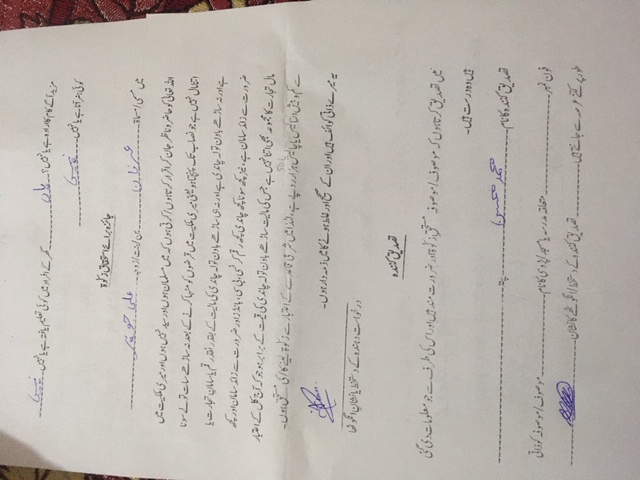 مزید آگے کام کا ارادہ ہے یا نہیں؟ ہاں گھر کے افراد میں کوئی تعلیم یافتہ ہے یا نہیں نہیں
کوئی ہنر آتا ہے یا نہیں نہیں
جائزہ برائے استحقاق زکوٰۃ
میں مسمی/مسماۃ بن/بنت/زوجہ علی
اللہ تعالیٰ کو حاضر و ناظر جان کر اقرار کرتا ہوں/کرتی ہوں کہ میں مسلمان ہوں اور سید نہیں ہوں اور میری ملکیت میں
اتنا مال نہیں ہے جو نصاب تک پہنچتا ہو یعنی میری ملکیت میں قرضوں کو منہا کرنے کے بعد نہ ساڑھے سات تولے سونا
ہے اور نہ ساڑھے باون تولہ چاندی ہے اور نہ ہی ساڑھے باون تولہ چاندی کی مالیت کے بقدر نقد رقم یا سامان تجارت یا
ضرورت سے زائد سامان ہے، نیز کچھ سونا کچھ چاندی کچھ رقم کرنسی، بی سی، بانڈز اور ضرورت سے زائد سامان اور کچھ
مال تجارت کا مجموعہ بھی اتنا نہیں ہے جس کی مالیت ساڑھے باون تولہ چاندی کی قیمت کے برابر ہو جو کہ آج کل کے اعتبار
سے کم و بیش انتالیس یا چالیس ہزار روپے ہے، لہٰذا میں شرعی قاعدے کے اعتبار سے زکوٰۃ لینے کا/کی مستحق ہوں۔
یہ میرے ذاتی کوائف ہیں اور ان کے صحیح اور غلط ہونے کا میں ذمہ دار ہوں۔
درخواست دہندہ کے دستخط یا نشان انگوٹھا
تصدیق کنندہ
میں تصدیق کرتا ہوں کہ موصوف/موصوفہ مستحق زکوٰۃ اور ضرورت مند ہیں اور اس کی طرف سے جو معلومات دی گئی
ہیں وہ درست ہیں۔
تصدیق کنندہ کا نام محمد محسن پتہ
فون نمبر متعلقہ مدرسہ یا مسجد/پڑوسی کا نام موصوف/موصوفہ کو ذاتی
طور پر کتنے عرصہ سے جانتے ہیں تصدیق کنندہ کے دستخط/انگوٹھے کا نشان